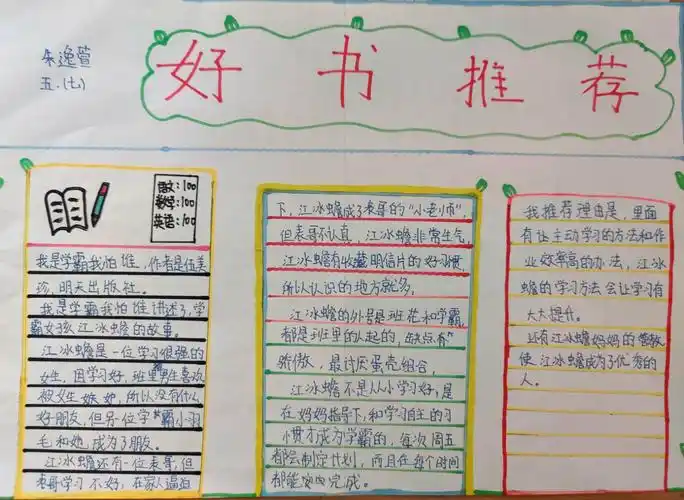 好书推荐
朱逸萱
五.(七)
语文:100
数学:100
英语:100
我是学霸我怕谁,作者是伍美
珍,明天出版社。
我是学霸我怕谁讲述了,学
霸女孩江冰蟾的故事。
江冰蟾是一位学习很强的
女生,因学习好,班里男生喜欢
被女生嫉妒,所以没有什么
好朋友,但另一位学霸小羽
毛和她,成为了朋友。
江冰蟾还有一位表哥,但
表哥学习不好,在家人逼迫
下,江冰蟾成了表哥的“小老师”,
但表哥不认真,江冰蟾非常生气,
江冰蟾有收藏明信片的好习惯,
所以认识的地方就多,
江冰蟾的外号是班花和学霸
都是班里的人起的,缺点有
骄傲,最讨厌蛋壳组合,
江冰蟾不是从小学习好,是
在妈妈指导下,和学习自主的习
惯才成为学霸的,每次周五
都会制定计划,而且在每个时间
都能完成。
我推荐理由是,里面
有让主动学习的方法和作
业效率高的办法,江冰
蟾的学习方法会让学习有
大大提升。
还有江冰蟾妈妈的
使江冰蟾成为了优秀的
人。